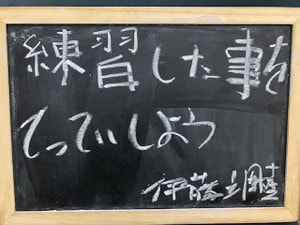 練習した事を
てっていしよう
伊藤